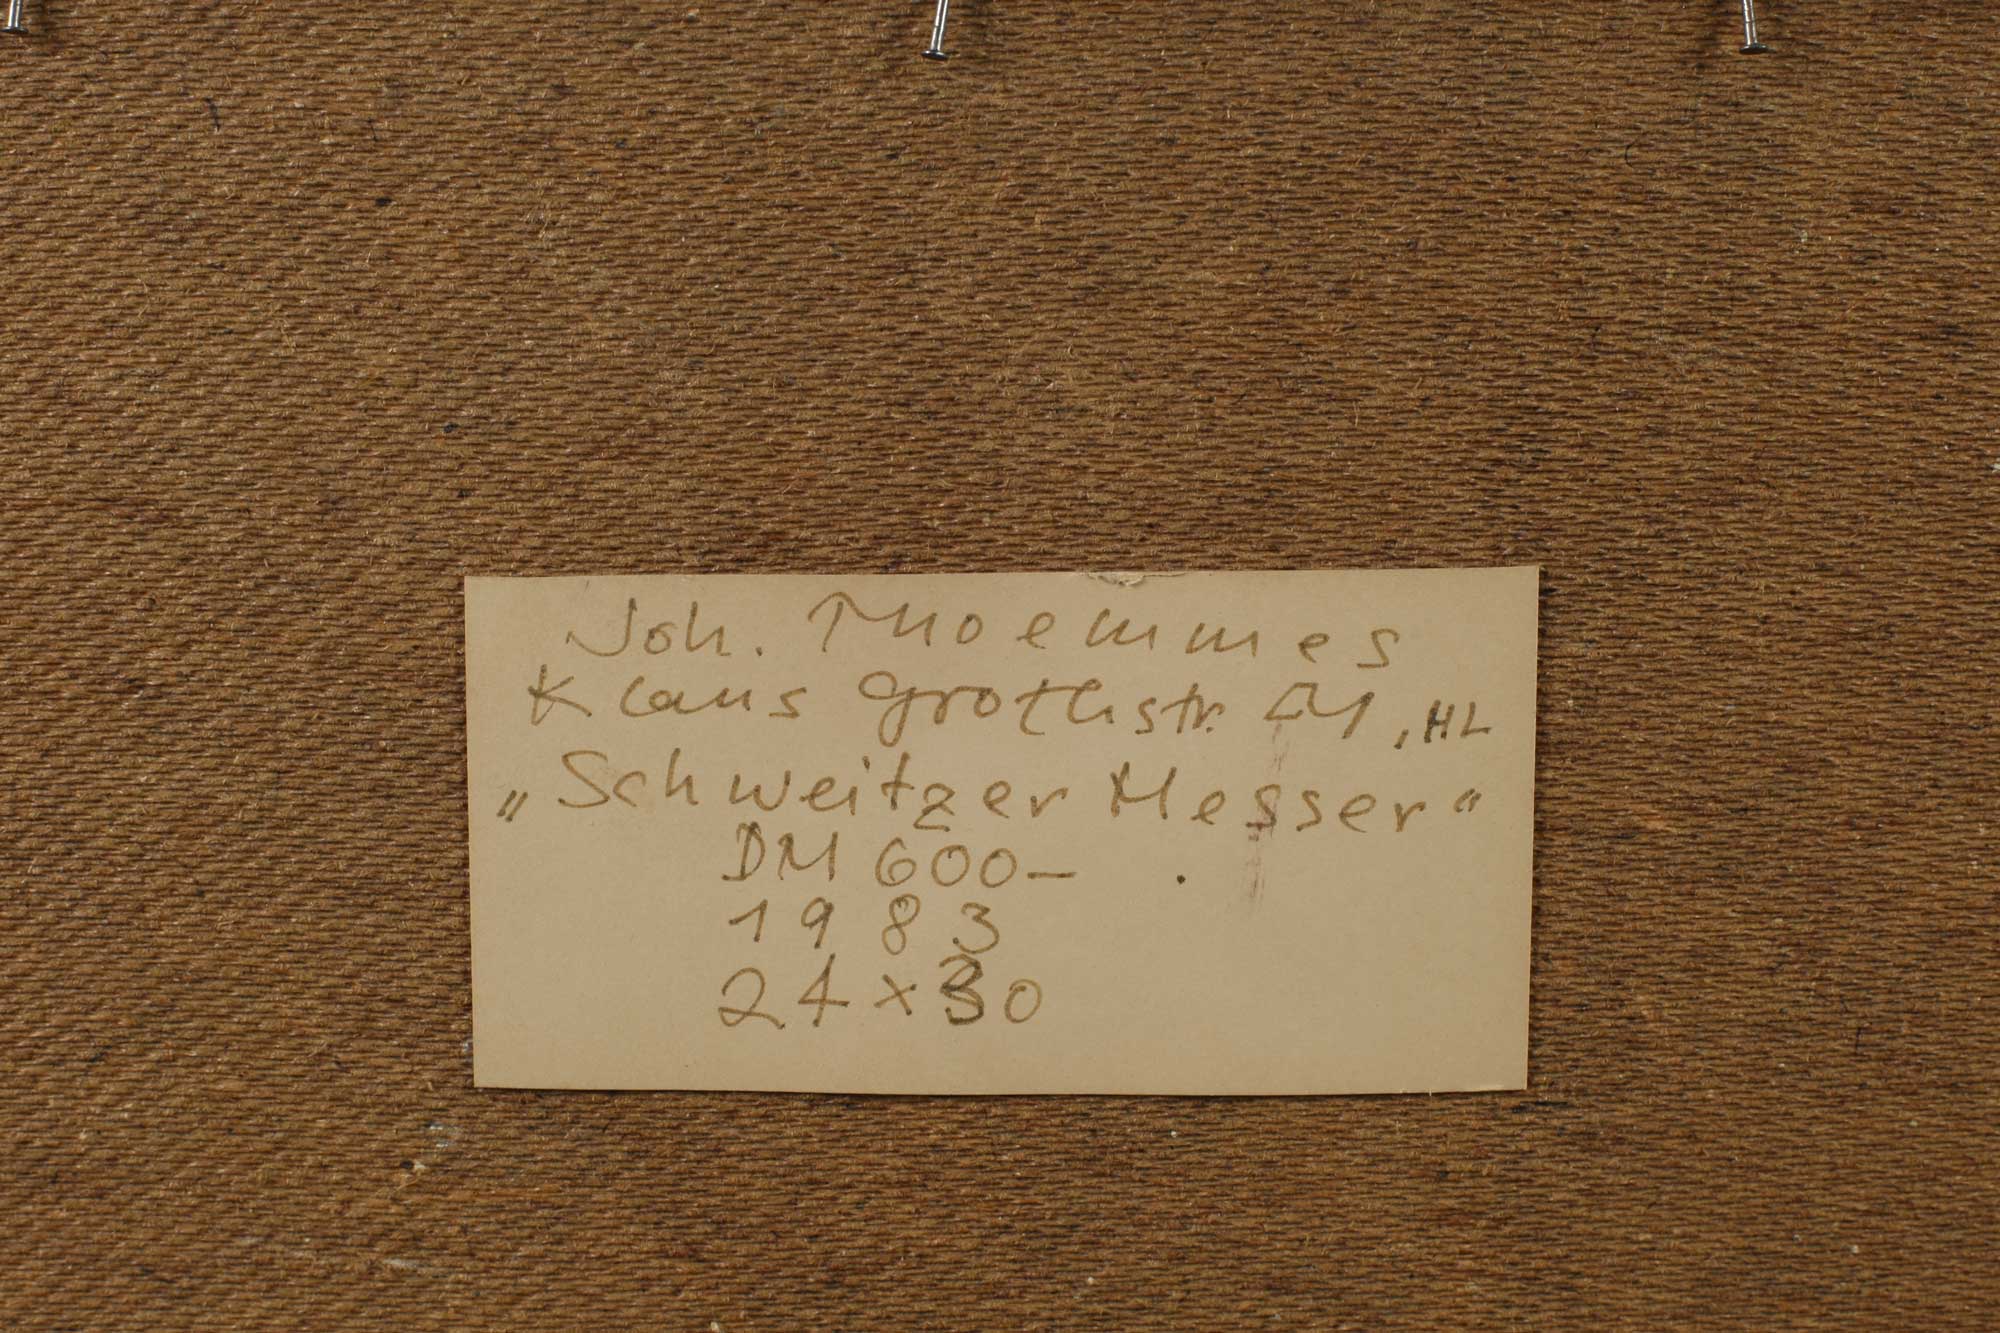 Joh. Thoemmes
Klaus Grothstr. 21, HL
„Schweitzer Messer“
DM 600–
1983
24 x 30